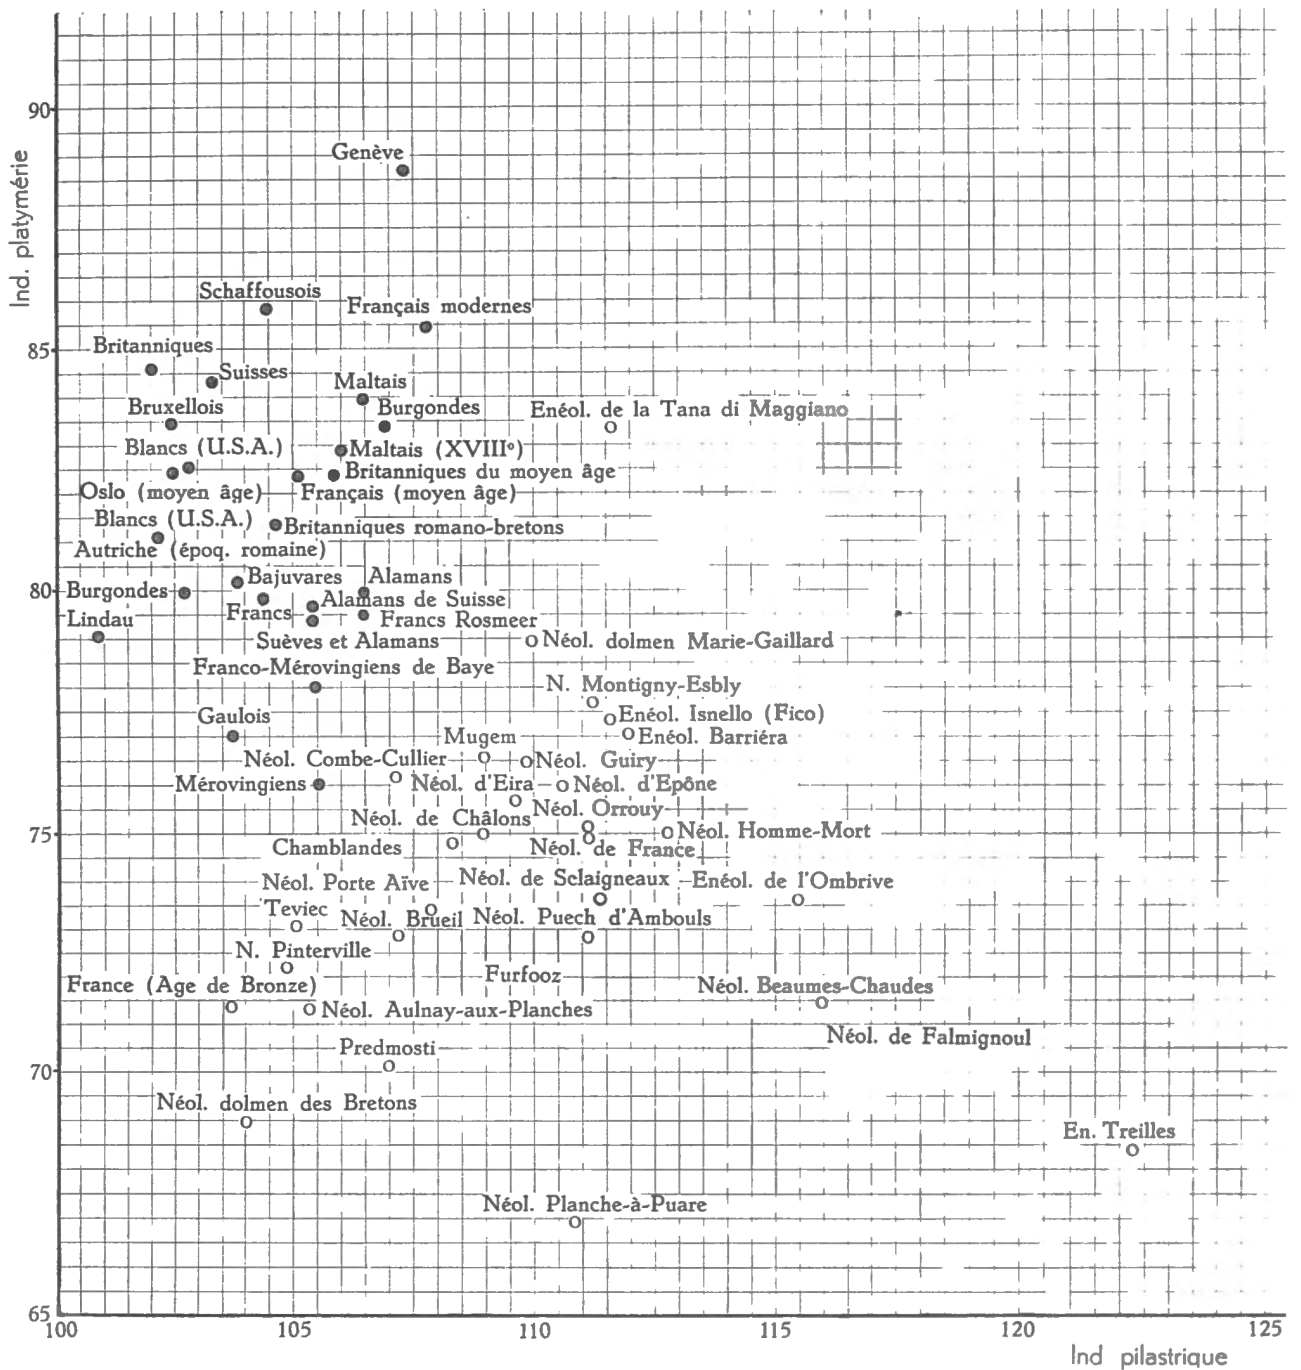 90
Genève
Ind. platymérie
Schaffousois
Français modernes
Britanniques
85
Suisses
Maltais
Bruxellois
Burgondes
Enéol. de la Tana di Maggiano
Blancs (U.S.A.)
Maltais (XVIIIᵉ)
Britanniques du moyen âge
Oslo (moyen âge)
Français (moyen âge)
Blancs (U.S.A.)
Britanniques romano-bretons
Autriche (époq. romaine)
Bajuvares
Alamans
80
Burgondes
Alamans de Suisse
Lindau
Francs
Francs Rosmeer
Suèves et Alamans
Néol. dolmen Marie-Gaillard
Franco-Mérovingiens de Baye
N. Montigny-Esbly
Gaulois
Enéol. Isnello (Fico)
Mugem
Enéol. Barriéra
Néol. Combe-Cullier
Néol. Guiry
Mérovingiens
Néol. d'Eira
Néol. d'Epône
Néol. Orrouy
Néol. de Châlons
75
Néol. Homme-Mort
Chamblandes
Néol. de France
Néol. Porte Aïve
Néol. de Sclaigneaux
Enéol. de l'Ombrive
Teviec
Néol. Brueil
Néol. Puech d'Ambouls
N. Pinterville
Furfooz
France (Age de Bronze)
Néol. Beaumes-Chaudes
Néol. Aulnay-aux-Planches
Néol. de Falmignoul
Predmosti
70
Néol. dolmen des Bretons
En. Treilles
Néol. Planche-à-Puare
65
100 105 110 115 120 125
Ind pilastrique